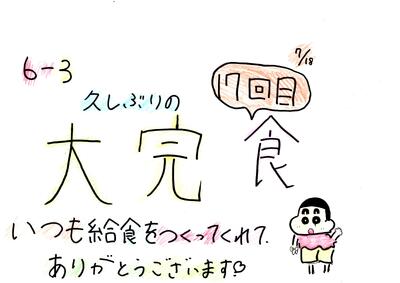 7/18
6-3
17回目
久しぶりの
大完食
いつも給食をつくってくれて、
ありがとうございます